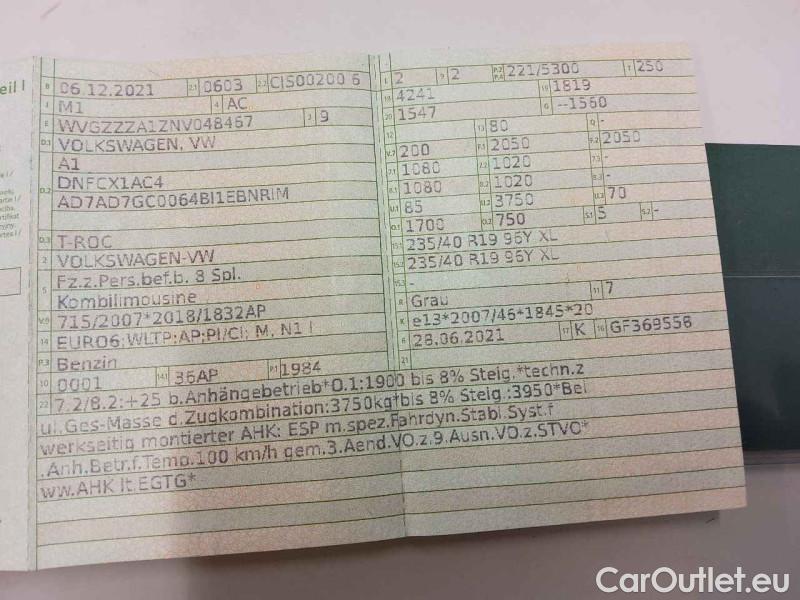 eil I
B 06.12.2021 2.1 0603 2.2 CJS00200 6
J M1 4 AC
E WVGZZZA1ZNV048467 3 9
D.1 VOLKSWAGEN, VW
A1
D.2 DNFCX1AC4
AD7AD7GC0064BI1EBNRIM
D.3 T-ROC
2 VOLKSWAGEN-VW
5 Fz.z.Pers.bef.b. 8 Spl.
Kombilimousine
V.9 715/2007*2018/1832AP
14 EURO6;WLTP;AP;PI/CI; M, N1 I
P.3 Benzin
10 0001 14.1 36AP P.1 1984
L 2 9 2 P.2 P.4 221/5300 T 250
18 4241 19 1819
20 1547 G --1560
12 - 13 80 Q -
V.7 200 F.1 2050 F.2 2050
7.1 1080 7.2 1020 7.3 -
8.1 1080 8.2 1020 8.3 -
U.1 85 U.2 3750 U.3 70
O.1 1700 O.2 750 S.1 5 S.2 -
15.1 235/40 R19 96Y XL
15.2 235/40 R19 96Y XL
15.3 -
R Grau 11 7
K e13*2007/46*1845*20
6 28.06.2021 17 K 16 GF369558
21
22 7.2/8.2:+25 b.Anhängebetrieb*O.1:1900 bis 8% Steig.*techn.z
ul.Ges-Masse d.Zugkombination:3750kg*bis 8% Steig.:3950*Bei
werkseitig montierter AHK: ESP m.spez.Fahrdyn.Stabi.Syst.f
.Anh.Betr.f.Temp.100 km/h gem.3.Aend.VO.z.9.Ausn.VO.z.STVO*
ww.AHK lt.EGTG*
CarOutlet.eu